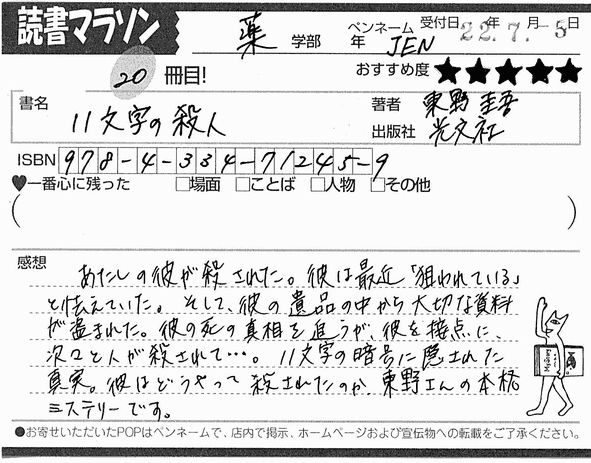 読書マラソン
薬 学部 年
ペンネーム JEN
受付日 22.年7.月-5日
20 冊目!
おすすめ度 ★★★★★
書名 11文字の殺人
著者 東野 圭吾
出版社 光文社
ISBN 978-4-334-71245-9
♥一番心に残った □場面 □ことば □人物 □その他
( )
感想
あたしの彼が殺された。彼は最近「狙われている」
と怯えていた。そして、彼の遺品の中から大切な資料
が盗まれた。彼の死の真相を追うが、彼を接点に、
次々と人が殺されて…。11文字の暗号に隠された
真実。彼はどうやって殺されたのか、東野さんの本格
ミステリーです。
●お寄せいただいたPOPはペンネームで、店内で掲示、ホームページおよび宣伝物への転載をご了承ください。